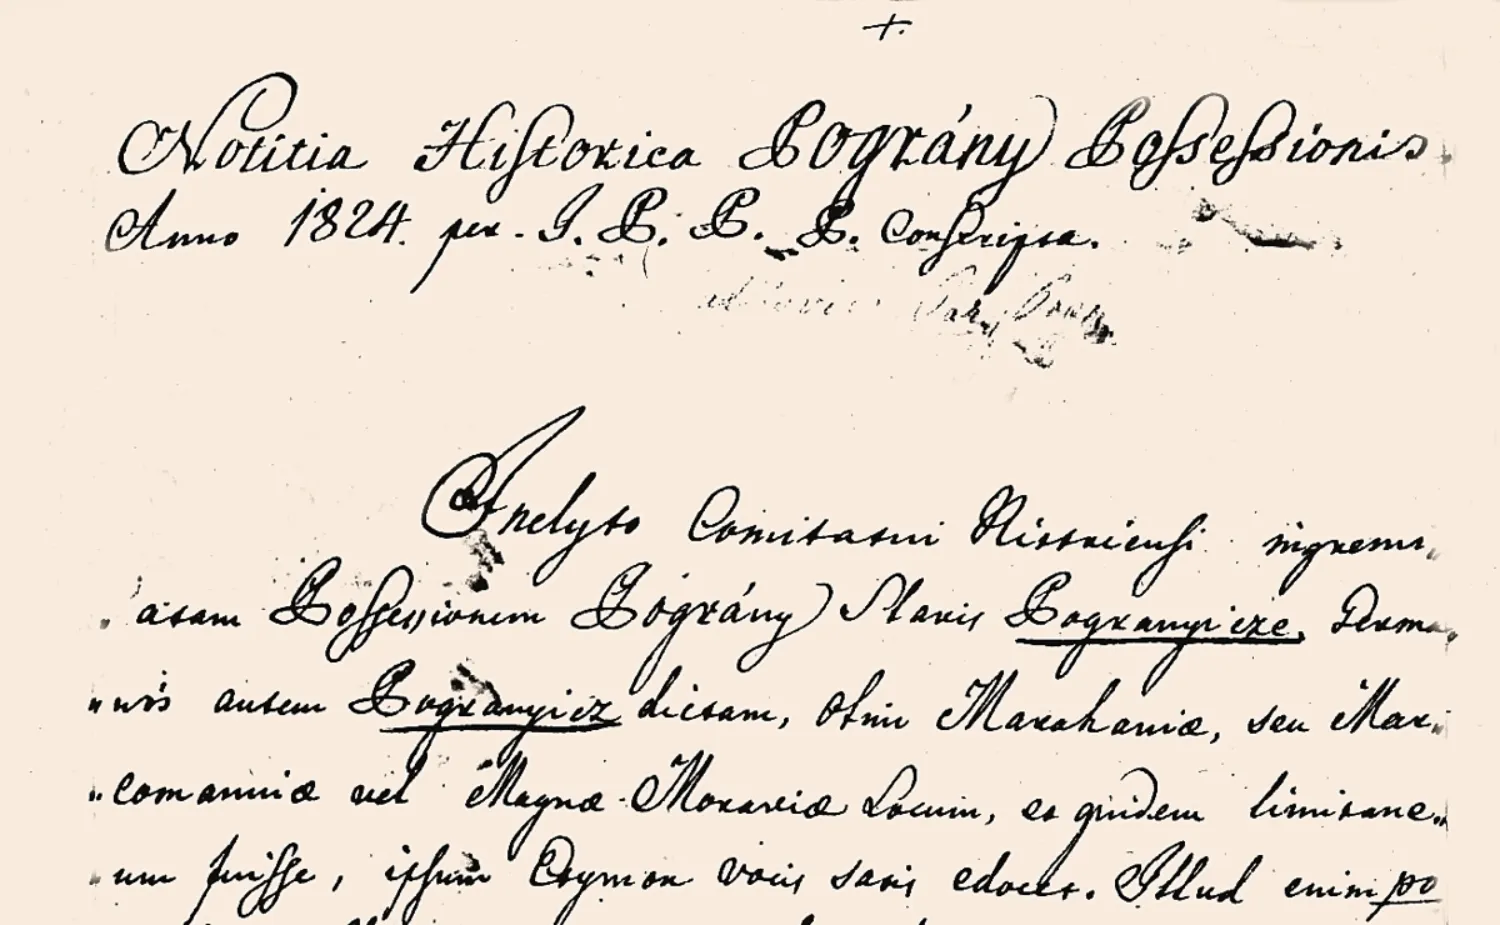 +.
Notitia Historica Pográny Possessionis
Anno 1824. per. I. P. P. P. Conscripta.
Inclyto Comitatui Nittriensi ingremi„
atam Possessionem Pográny Slavis Pogranyicze, Germa„
„nis autem Pogranyicz dictam, olim Marahaniæ, seu Mar„
„comanniæ vel Magnæ Moraviæ Locum, et quidem limitane„
„um fuisse, ipsum Etymon vocis satis edocet. Illud enim po